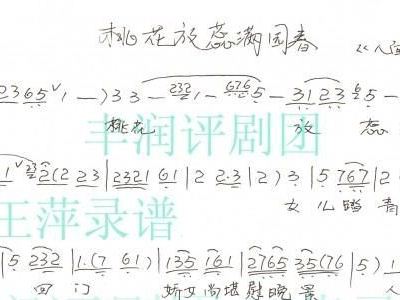 桃花放蕊满园春 《人面
2365 ∨ 1 — ) 3 3 — 232 1 — 676 5 — 31 23 6 5 —
桃花 放 蕊
丰润评剧团
1 2 (2 2 3 | 2321 61 | 2 2·3 | 2 ) 3 | 5 767 | 2
女儿踏青
王萍录谱
| 5 232 | 1·(7 61) | 135 161 | 2765 35(76 | 5) 1
四门 娇女尚堪慰晚景 人